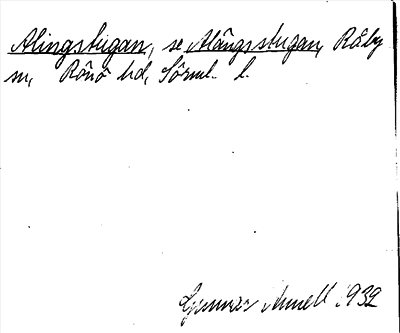 Alingsstugan, se Alångsstugan, Råby
sn, Rönö hd, Sörml. l.
Gunnar Annell 1932